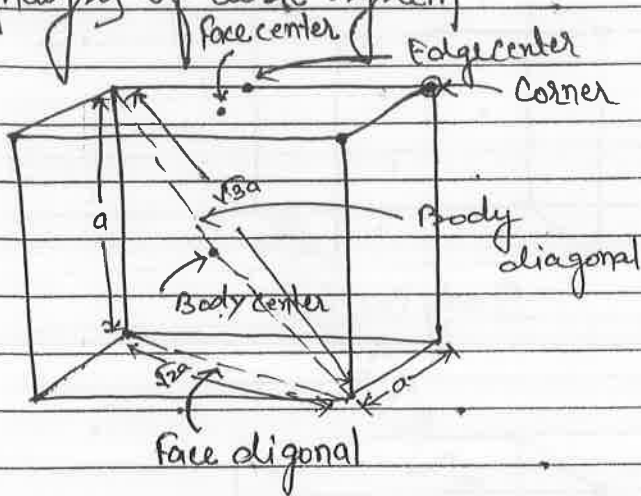 of
face center
Edge center
Corner
√3a
a
Body
diagonal
Body center
√2a
a
Face digonal